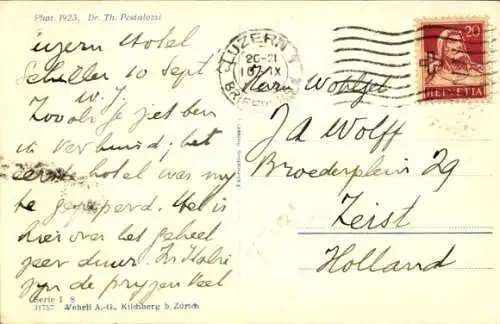 Phot. 1923, Dr. Th. Pestalozzi
Luzern Hotel
Schiller 10 Sept
W. J.
Zooals je ziet ben
ik verhuisd; het
eerste hotel was mij
te gepeperd. Het is
hier over het geheel
zeer duur. In Italie
zijn de prijzen veel
Serie I 8
31757 Wehrli A.-G., Kilchberg b. Zürich
LUZERN 1
20-21
10. IX
BRIEF
20
HELVETIA
Herrn Wohlgeb
J A Wolff
Broederplein 29
Zeist
Holland